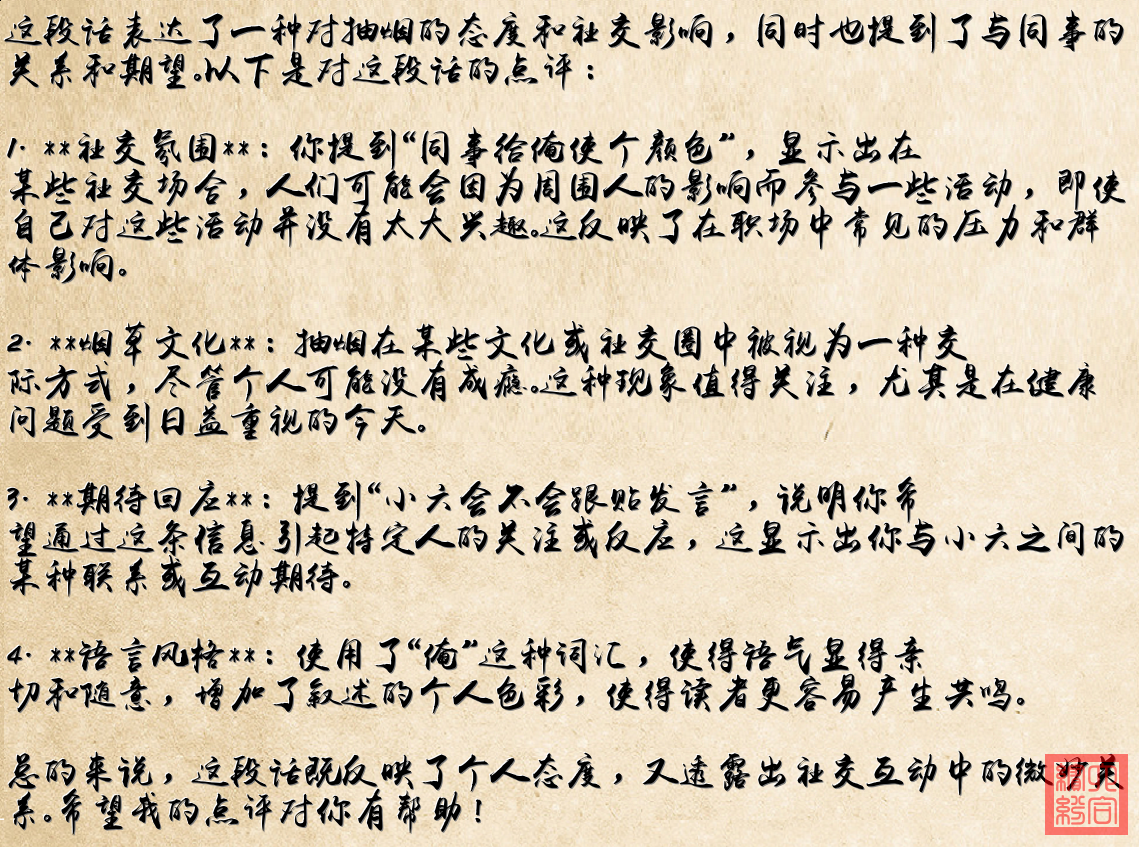 这段话表达了一种对抽烟的态度和社交影响，同时也提到了与同事的
关系和期望。以下是对这段话的点评：
1. **社交氛围**：你提到“同事给俺使个颜色”，显示出在
某些社交场合，人们可能会因为周围人的影响而参与一些活动，即使
自己对这些活动并没有太大兴趣。这反映了在职场中常见的压力和群
体影响。
2. **烟草文化**：抽烟在某些文化或社交圈中被视为一种交
际方式，尽管个人可能没有成瘾。这种现象值得关注，尤其是在健康
问题受到日益重视的今天。
3. **期待回应**：提到“小六会不会跟贴发言”，说明你希
望通过这条信息引起特定人的关注或反应，这显示出你与小六之间的
某种联系或互动期待。
4. **语言风格**：使用了“俺”这种词汇，使得语气显得亲
切和随意，增加了叙述的个人色彩，使得读者更容易产生共鸣。
总的来说，这段话既反映了个人态度，又透露出社交互动中的微妙关
系。希望我的点评对你有帮助！